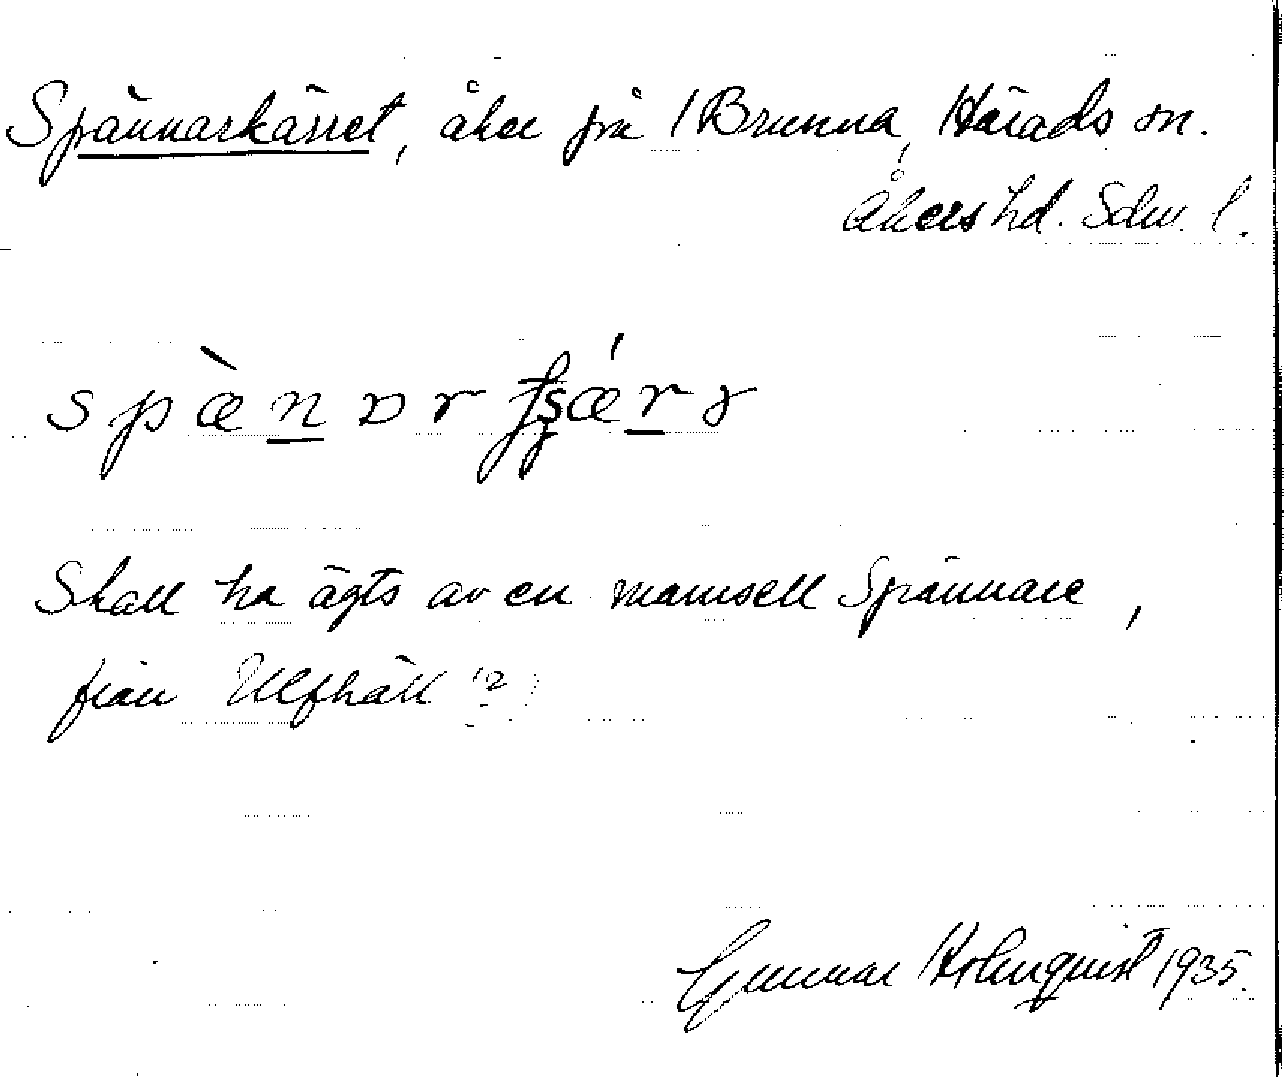 Spännarkärret, åker på Brunna, Härads sn.
Åkers hd. Sdm. l.
Skall ha ägts av en mamsell Spännare,
från Ulfhäll (?)
Gunnar Holmquist 1935.